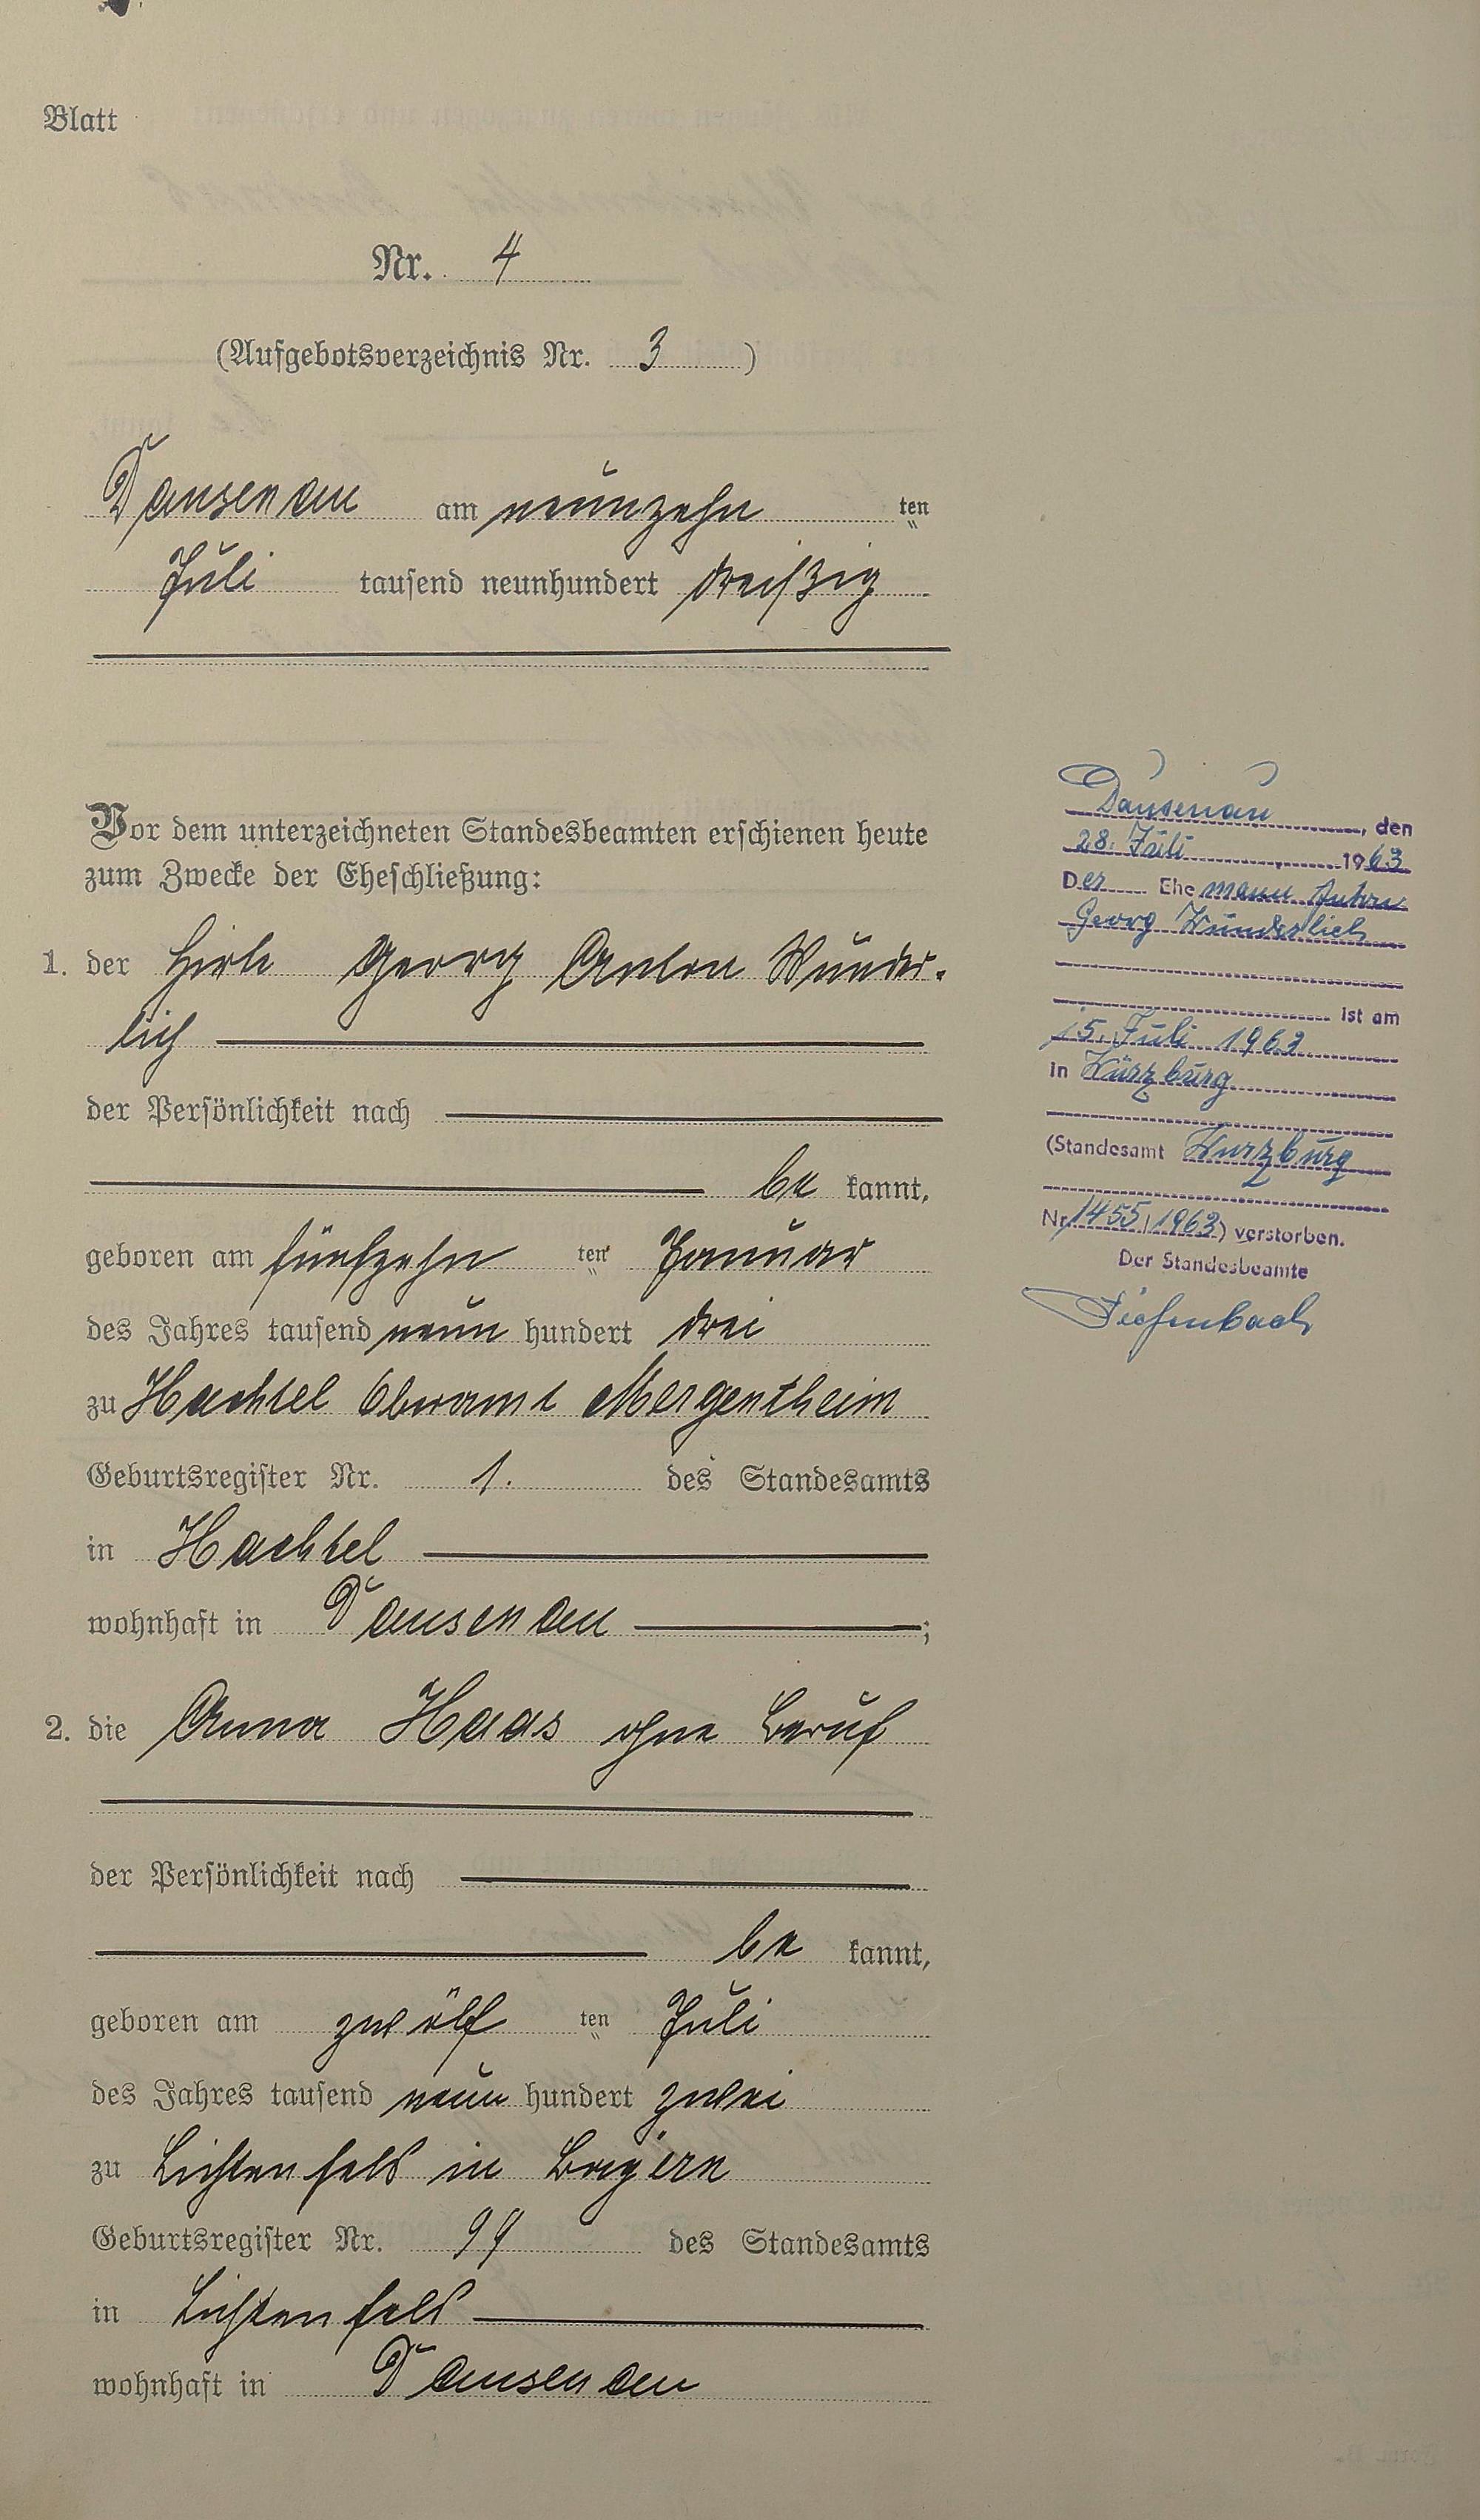 Blatt
Nr. 4
(Aufgebotsverzeichnis Nr. 3)
Dausenau am neunzehn ten
Juli tausend neunhundert dreißig
Vor dem unterzeichneten Standesbeamten erschienen heute
zum Zwecke der Eheschließung:
1. der Hirte Georg Anton Wunder-
lich
der Persönlichkeit nach
be kannt,
geboren am fünfzehn ten Januar
des Jahres tausend neun hundert drei
zu Hachtel Oberamt Mergentheim
Geburtsregister Nr. 1. des Standesamts
in Hachtel
wohnhaft in Dausenau ;
2. die Anna Haas ohne Beruf
der Persönlichkeit nach
be kannt,
geboren am zwölf ten Juli
des Jahres tausend neun hundert zwei
zu Lichtenfels in Bayern
Geburtsregister Nr. 99 des Standesamts
in Lichtenfels
wohnhaft in Dausenau
Dausenau, den
28. Juli 1963
Der Ehemann Anton
Georg Wunderlich
ist am
15. Juli 1963
in Würzburg
(Standesamt Würzburg
Nr. 1455/1963) verstorben.
Der Standesbeamte
Tiefenbach